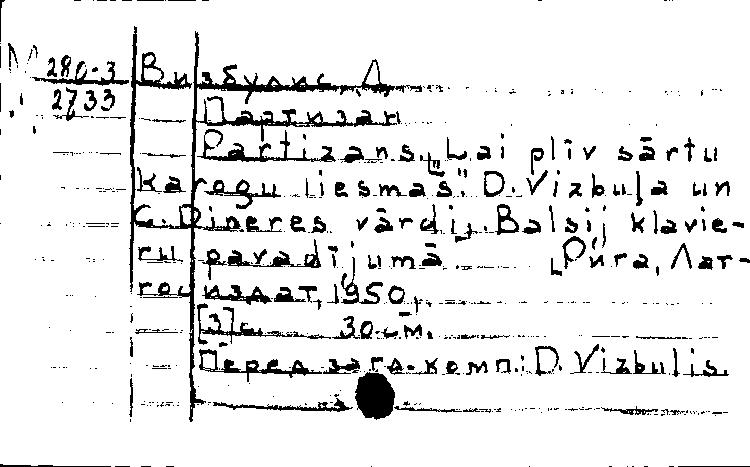 М 280-3 Визбулис, Д.
2733 Партизан
Partizans. „Lai plīv sārtu
karogu liesmas". D. Vizbuļa un
C. Dineres vārdi. Balsij klavie-
ru pavadījumā. Рига, Лат-
госиздат, 1950.
[3] с. 30 см.
Перед загл. комп.: D. Vizbulis.